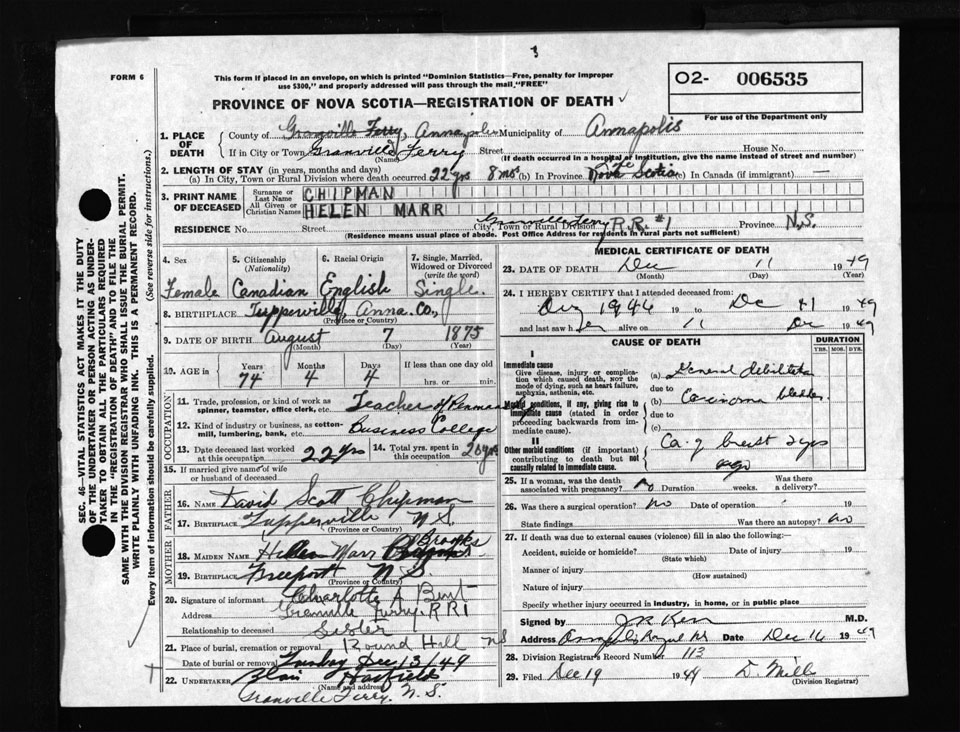 3
FORM 6
This form if placed in an envelope, on which is printed "Dominion Statistics—Free, penalty for improper
use $300," and properly addressed will pass through the mail, "FREE"
PROVINCE OF NOVA SCOTIA—REGISTRATION OF DEATH
O2- 006535
For use of the Department only
SEC. 46—VITAL STATISTICS ACT MAKES IT THE DUTY
OF THE UNDERTAKER OR PERSON ACTING AS UNDER-
TAKER TO OBTAIN ALL THE PARTICULARS REQUIRED
IN THE "REGISTRATION OF DEATH" AND TO FILE THE
SAME WITH THE DIVISION REGISTRAR WHO SHALL ISSUE THE BURIAL PERMIT.
WRITE PLAINLY WITH UNFADING INK. THIS IS A PERMANENT RECORD.
Every item of information should be carefully supplied. (See reverse side for instructions.)
1. PLACE OF DEATH County of Granville Ferry, Annapolis Municipality of Annapolis
If in City or Town Granville Ferry Street House No.
(Name) (If death occurred in a hospital or institution, give the name instead of street and number)
2. LENGTH OF STAY (in years, months and days)
(a) In City, Town or Rural Division where death occurred 22 yrs 8 ms (b) In Province Life Nova Scotia (c) In Canada (if immigrant) —
3. PRINT NAME OF DECEASED Surname or Last Name CHIPMAN
All Given or Christian Names HELEN MARR
RESIDENCE No. Street City, Town or Rural Division Granville Ferry R.R. #1 Province N.S.
(Residence means usual place of abode. Post Office Address for residents in rural parts not sufficient)
4. Sex Female
5. Citizenship (Nationality) Canadian
6. Racial Origin English
7. Single, Married, Widowed or Divorced (write the word) Single.
8. BIRTHPLACE Tupperville, Anna. Co.,
(Province or Country)
9. DATE OF BIRTH August 7 1875
(Month) (Day) (Year)
10. AGE IN Years 74 Months 4 Days 4 If less than one day old
hrs. or min.
OCCUPATION
11. Trade, profession or kind of work as spinner, teamster, office clerk, etc. Teacher of
12. Kind of industry or business, as cotton-mill, lumbering, bank, etc. Business College
13. Date deceased last worked at this occupation 22 yrs 14. Total yrs. spent in this occupation 20 yrs
15. If married give name of wife or husband of deceased
FATHER
16. NAME David Scott Chipman
17. BIRTHPLACE Tupperville N.S.
(Province or Country)
MOTHER
18. MAIDEN NAME Hellen Marr Brooks
19. BIRTHPLACE Freeport N S
(Province or Country)
20. Signature of informant Charlotte A Bent
Address Granville Ferry RR1
Relationship to deceased Sister
21. Place of burial, cremation or removal Round Hill NS
Date of burial or removal Tuesday Dec 13/49
22. UNDERTAKER Blair Hatfield
(Name and address)
Granville Ferry. N.S.
MEDICAL CERTIFICATE OF DEATH
23. DATE OF DEATH Dec 11 1949
(Month) (Day) (Year)
24. I HEREBY CERTIFY that I attended deceased from:
1946 19 to Dec 11 1949
and last saw her alive on 11 Dec 1949
CAUSE OF DEATH
DURATION
YRS. MOS. DYS.
I
Immediate cause
Give disease, injury or complication which caused death, NOT the mode of dying, such as heart failure, asphyxia, asthenia, etc.
(a) General
due to
Morbid conditions, if any, giving rise to immediate cause (stated in order proceeding backwards from immediate cause).
(b) Carcinoma bladder
due to
(c)
II
Other morbid conditions (if important) contributing to death but not causally related to immediate cause.
Ca. of breast 2 yrs
ago
25. If a woman, was the death associated with pregnancy? no Duration weeks. Was there a delivery?
26. Was there a surgical operation? no Date of operation 19
State findings Was there an autopsy? no
27. If death was due to external causes (violence) fill in also the following:—
Accident, suicide or homicide? Date of injury 19
(State which)
Manner of injury
(How sustained)
Nature of injury
Specify whether injury occurred in industry, in home, or in public place
Signed by M.D.
Address Annapolis Royal NS Date Dec 16 1949
28. Division Registrar's Record Number 113
29. Filed Dec 19 1949 D. Mills
(Division Registrar)